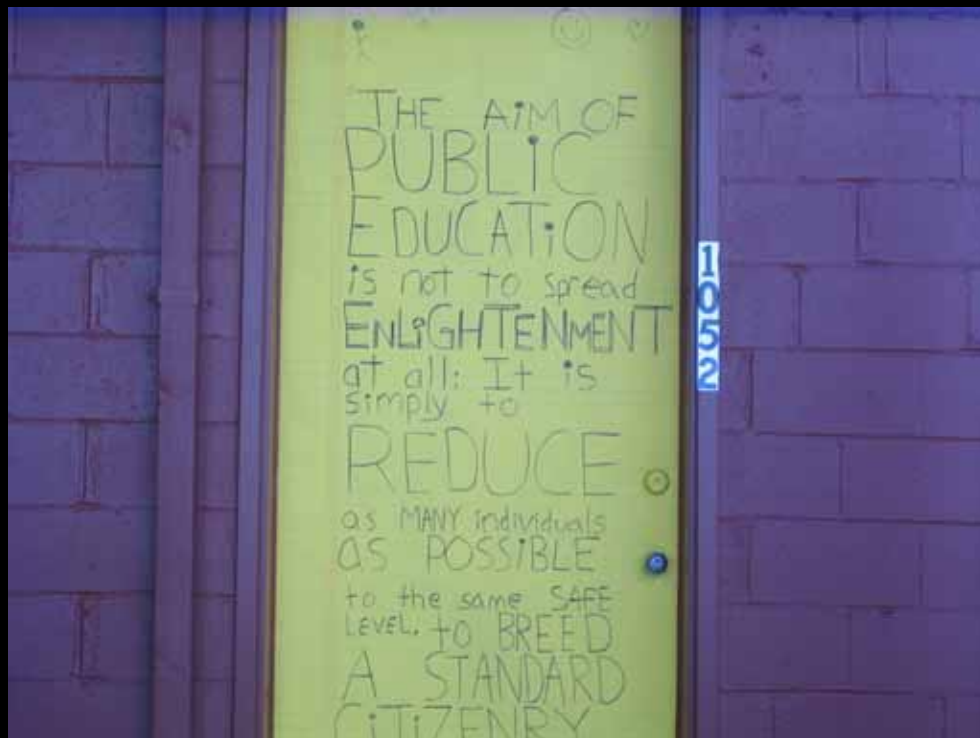 THE AiM OF
PUBLiC
EDUCATiON
is not to spread
ENLiGHTENMENT
at all: It is
simply to
REDUCE
as MANY individuals
as POSSiBLE
to the same SAFE
LEVEL. to BREED
A STANDARD
CiTiZENRY
1052